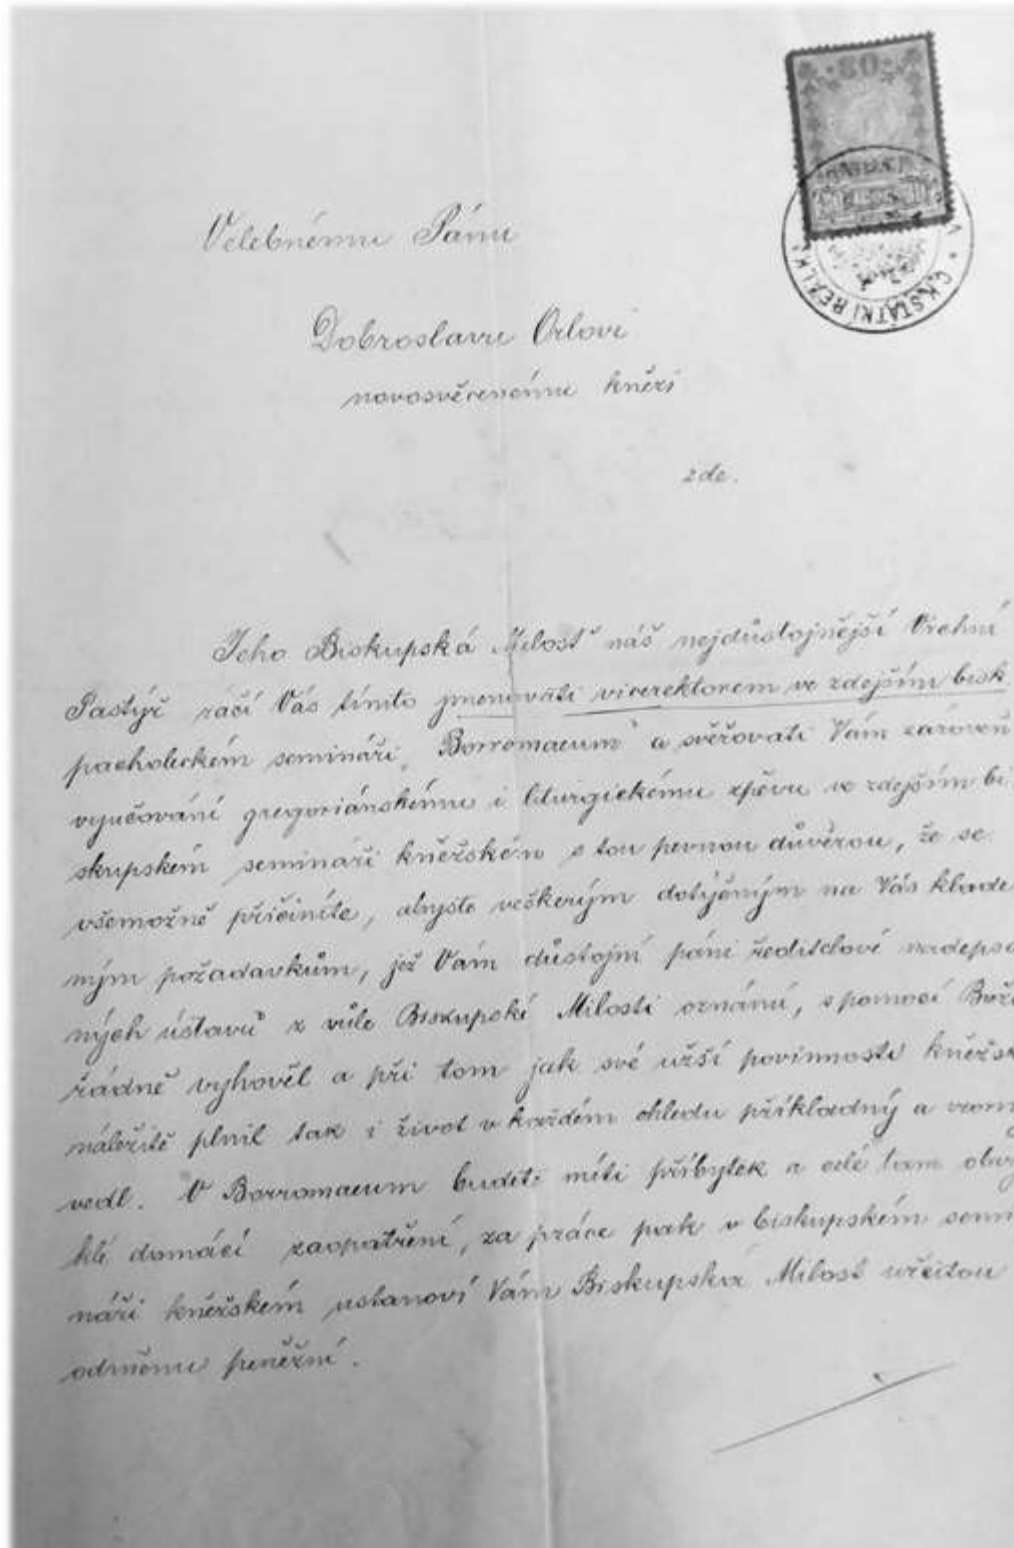 80
C.K.STÁTNÍ REÁLKY
Velebnému Pánu
Dobroslavu Orlovi
novosvěcenému knězi
zde.
Jeho Biskupská Milosť náš nejdůstojnější Vrchní
Pastýř ráčí Vás tímto jmenovati vicerektorem ve zdejším bisk.
pacholeckém semináři „Borromaeum" a svěřovati Vám zároveň
vyučování gregoriánskému i liturgickému zpěvu ve zdejším bi
skupském semináři kněžském s tou pevnou důvěrou, že se
všemožně přičiníte, abyste veškerým dotyčným na Vás klade
ným požadavkům, jež Vám důstojní páni ředitelové nadepsa
ných ústavů z vůle Biskupské Milosti oznámí, s pomocí Boží
řádně vyhověl a při tom jak své užší povinnosti kněžsk
náležitě plnil tak i život v každém ohledu příkladný a vzorn
vedl. V Borromaeum budete míti příbytek a celé tam obvy
klé domácí zaopatření, za práce pak v biskupském semi
náři kněžském ustanoví Vám Biskupská Milost určitou
odměnu peněžní.